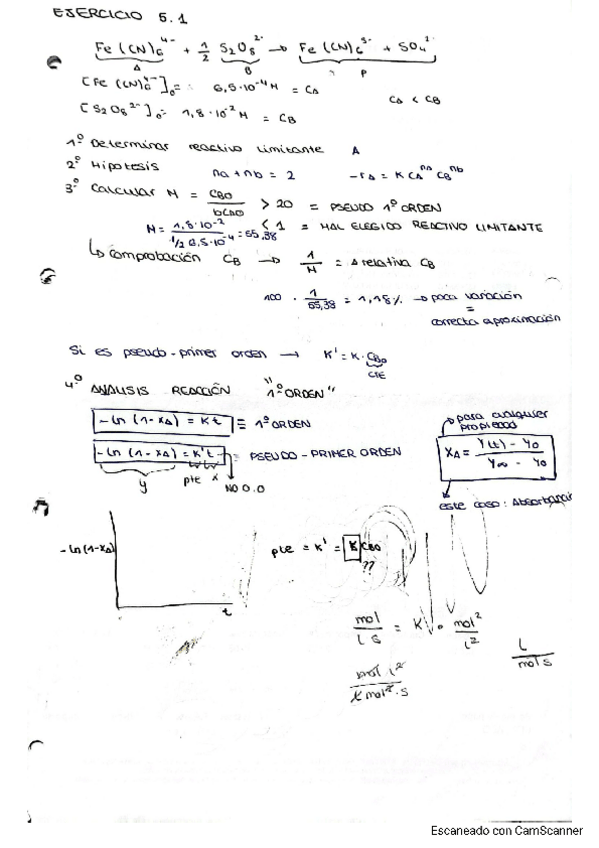 EJERCICIO 5.1
Fe(CN)₆⁴⁻ + 1/2 S₂O₈²⁻ → Fe(CN)₆³⁻ + SO₄²⁻
A B P
[Fe(CN)₆⁴⁻]₀ = 6,5·10⁻⁴ M = CA
CA < CB
[S₂O₈²⁻]₀ = 1,8·10⁻² M = CB
1º Determinar reactivo limitante A
2º Hipotesis na + nb = 2 -rA = K CA^na CB^nb
3º Calcular M = CBO / bCAO > 20 = PSEUDO 1º ORDEN
< 1 = MAL ELEGIDO REACTIVO LIMITANTE
M = 1,8·10⁻² / 1/2 6,5·10⁻⁴ = 55,38
↳ Comprobación CB → 1/M = Δ relativa CB
100 · 1/55,38 = 1,18% → poca variación
=
correcta aproximación
Si es pseudo-primer orden → K' = K·CBO
CTE
4º ANALISIS REACCIÓN "1º ORDEN"
-ln (1-XA) = Kt ≡ 1º ORDEN
-ln (1-XA) = K't = PSEUDO-PRIMER ORDEN
y pte x NO 0.0
para cualquier propiedad
XA = Y(t) - Y0 / Y∞ - Y0
este caso: Absorbancia
-ln (1-XA)
t
pte = K' = K CBO
??
mol / L s = K · mol² / L²
L / mol s
mol L² / L mol² · s
Escaneado con CamScanner